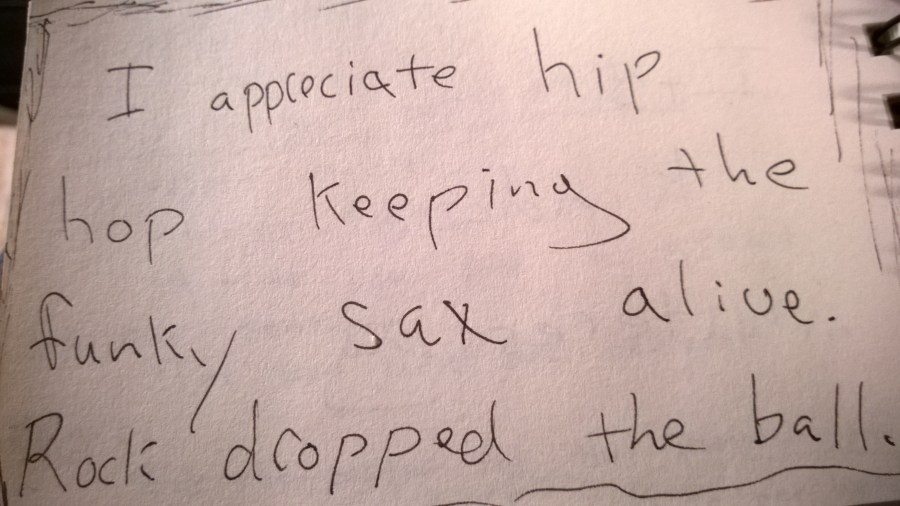 I appreciate hip
hop keeping the
funky sax alive.
Rock dropped the ball.